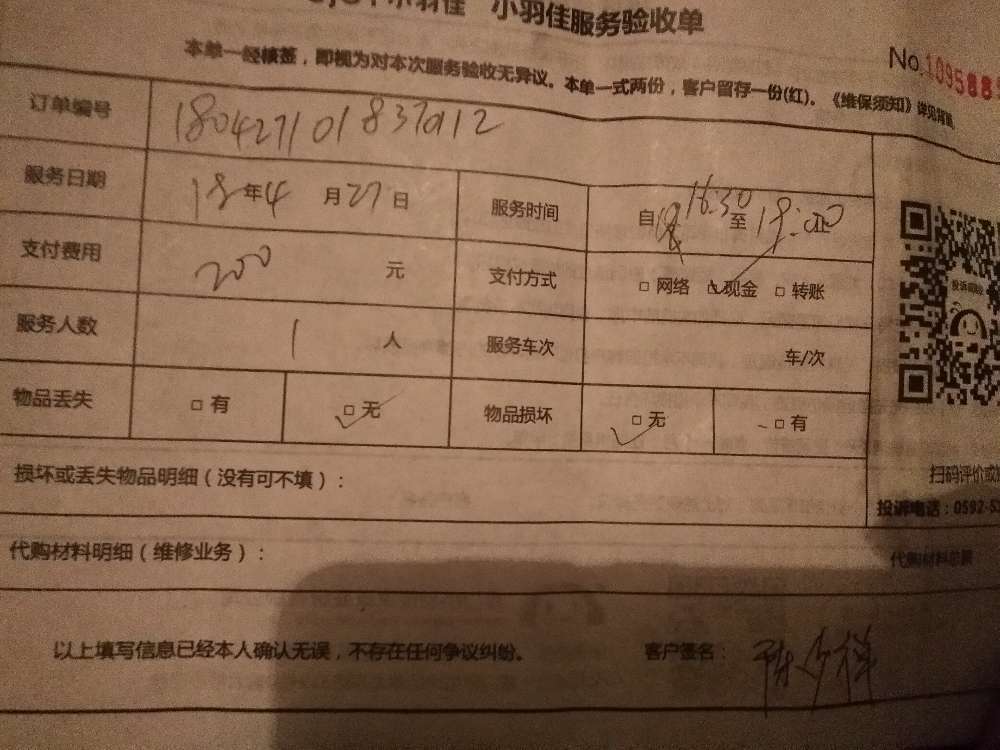 小羽佳 小羽佳服务验收单
本单一经核签，即视为对本次服务验收无异议。本单一式两份，客户留存一份(红)。《维保须知》详见背面
No.109588
订单编号 180427101837012
服务日期 18年4月27日 服务时间 自16:30至19:00
支付费用 200元 支付方式 □网络 □现金 □转账
服务人数 1人 服务车次 车/次
物品丢失 □有 □无 物品损坏 □无 □有
投诉
扫码评价或
损坏或丢失物品明细（没有可不填）：
投诉电话：0592-5
代购材料明细（维修业务）：
代购材料总额
以上填写信息已经本人确认无误，不存在任何争议纠纷。 客户签名：